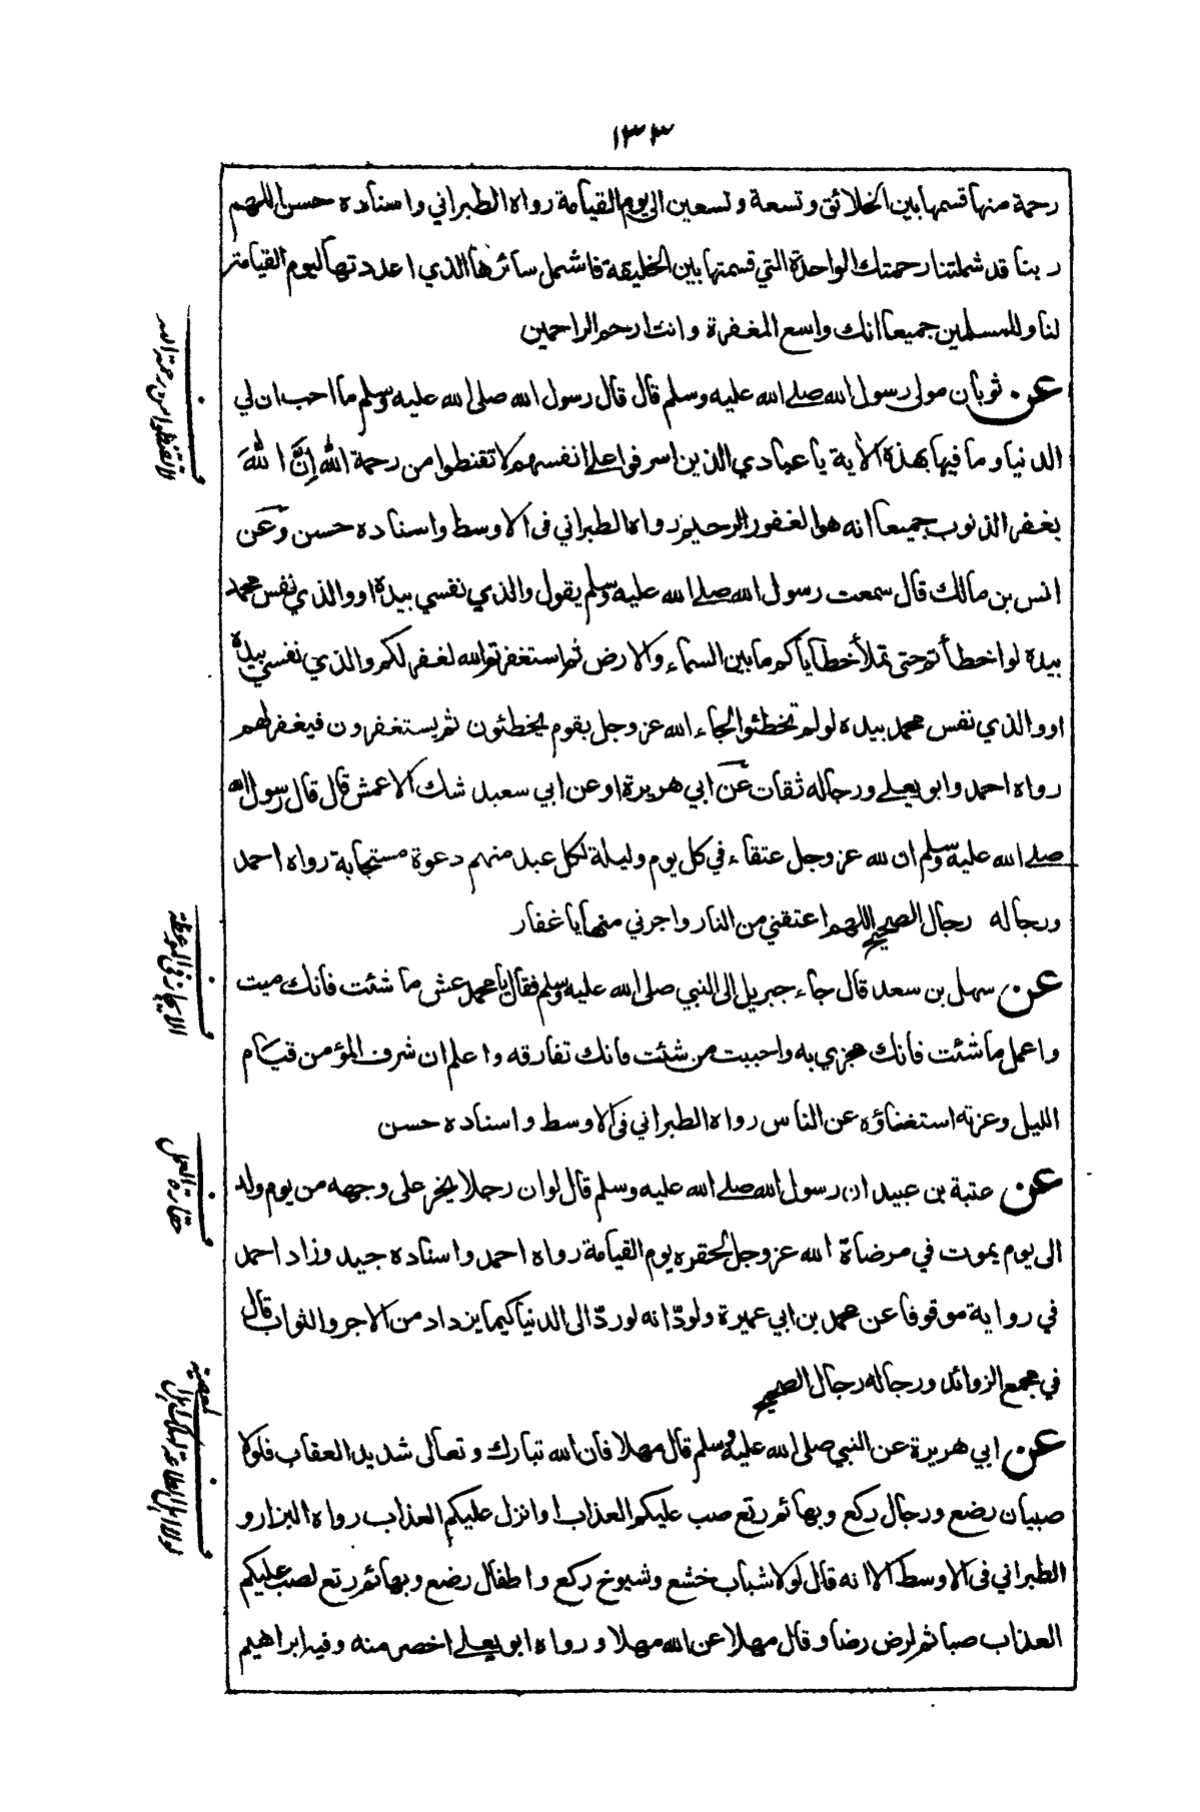 ١٣٣
رحمة منها قسمها بين الخلائق وتسعة وتسعين الى يوم القيامة رواه الطبراني واسناده حسن اللهم
ربنا قد شملتنا رحمتك الواحدة التي قسمتها بين الخليقة فاشمل سائرها الذي اعددتها ليوم القيامة
لنا وللمسلمين جميعا انك واسع المغفرة وانت ارحم الراحمين
عن ثوبان مولى رسول الله صلى الله عليه وسلم قال قال رسول الله صلى الله عليه وسلم ما احب ان لي
الدنيا وما فيها بهذه الاية يا عبادي الذين اسرفوا على انفسهم لا تقنطوا من رحمة الله اِنَّ اللهَ
يغفر الذنوب جميعا انه هو الغفور الرحيم رواه الطبراني فى الاوسط واسناده حسن وعن
انس بن مالك قال سمعت رسول الله صلى الله عليه وسلم يقول والذي نفسي بيده او والذي نفس محمد
بيده لو اخطأتم حتى تملأ خطاياكم ما بين السماء والارض ثم استغفرتم الله لغفر لكم والذي نفسي بيده
او والذي نفس محمد بيده لو لم تخطئوا لجاء الله عز وجل بقوم يخطئون ثم يستغفرون فيغفر لهم
رواه احمد وابو يعلى ورجاله ثقات عن ابي هريرة او عن ابي سعيد شك الاعمش قال قال رسول الله
صلى الله عليه وسلم ان لله عز وجل عتقاء في كل يوم وليلة لكل عبد منهم دعوة مستجابة رواه احمد
ورجاله رجال الصحيح اللهم اعتقني من النار واجرني منها يا غفار
عن سهل بن سعد قال جاء جبريل الى النبي صلى الله عليه وسلم فقال يا محمد عش ما شئت فانك ميت
واعمل ما شئت فانك مجزي به واحببت من شئت فانك تفارقه واعلم ان شرف المؤمن قيام
الليل وعزته استغناؤه عن الناس رواه الطبراني فى الاوسط واسناده حسن
عن عتبة بن عبيد ان رسول الله صلى الله عليه وسلم قال لو ان رجلا يخر على وجهه من يوم ولد
الى يوم يموت في مرضاة الله عز وجل لحقره يوم القيامة رواه احمد واسناده جيد وزاد احمد
في رواية موقوفا عن محمد بن ابي عميرة ولودّ انه لو ردّ الى الدنيا كيما يزداد من الاجر والثواب قال
في مجمع الزوائد ورجاله رجال الصحيح
عن ابي هريرة عن النبي صلى الله عليه وسلم قال مهلا فان الله تبارك وتعالى شديد العقاب فلولا
صبيان رضع ورجال ركع وبهائم رتع صب عليكم العذاب او انزل عليكم العذاب رواه البزار و
الطبراني فى الاوسط الا انه قال لولا شباب خشع وشيوخ ركع واطفال رضع وبهائم رتع لصب عليكم
العذاب صبا ثم لرض رضا وقال مهلا عن الله مهلا ورواه ابو يعلى اخصر منه وفيه ابراهيم
لا تقنطوا من رحمة الله
الايجاز فى الموعظة
حقارة العمل
لولا اهل الطاعة لهلك اهل
المعصية